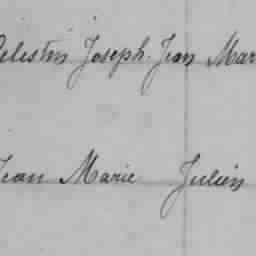 Celestin Joseph Jean Mar
Jean Marie Julien